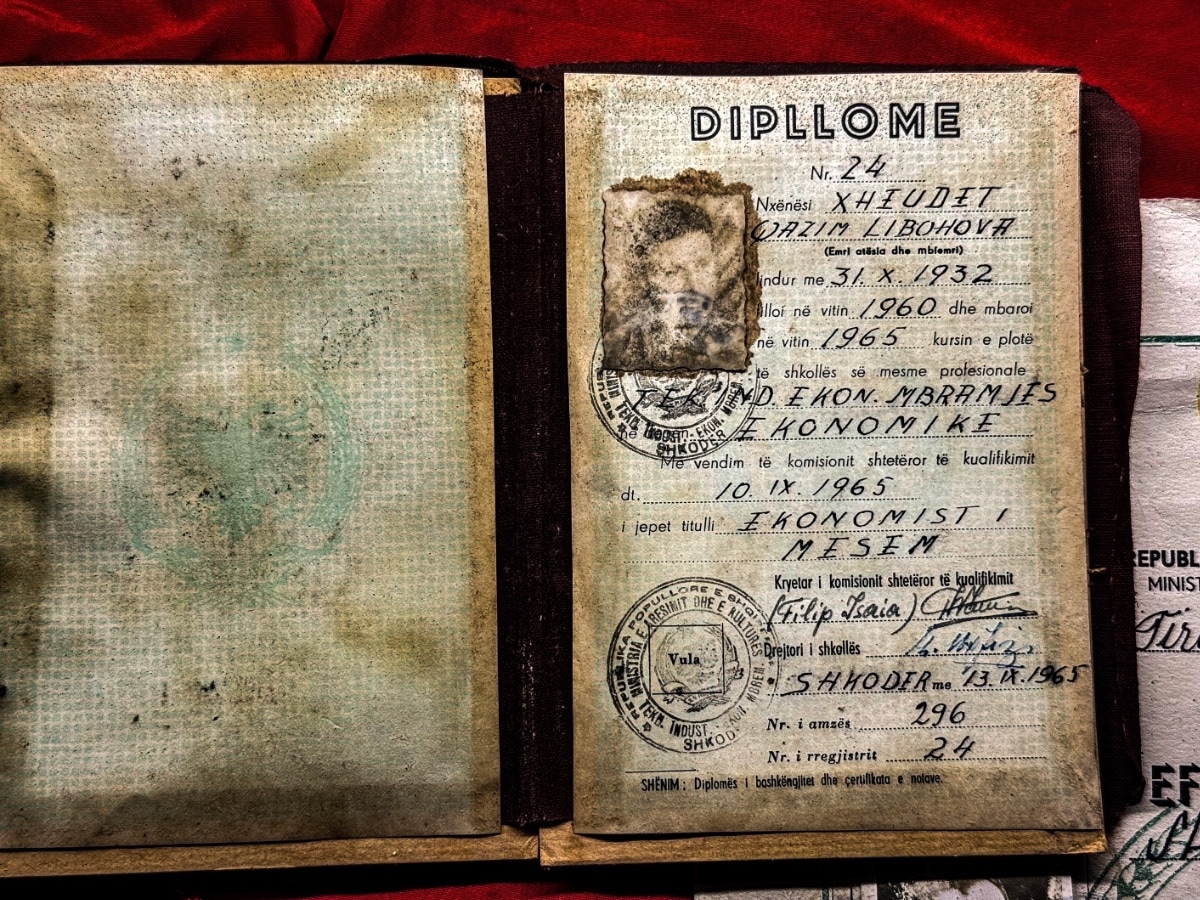 DIPLLOME
Nr. 24
Nxënësi XHEUDET
QAZIM LIBOHOVA
(Emri atësia dhe mbiemri)
lindur me 31. X. 1932
filloi në vitin 1960 dhe mbaroi
në vitin 1965 kursin e plotë
të shkollës së mesme profesionale
EKON. MBRAMJES
EKONOMIKE
Me vendim të komisionit shtetëror të kualifikimit
dt. 10. IX. 1965
i jepet titulli EKONOMIST I
MESEM
Kryetar i komisionit shtetëror të kualifikimit
(Filip Isaia)
Drejtori i shkollës
SHKODER me 13. IX. 1965
Nr. i amzës 296
Nr. i rregjistrit 24
SHËNIM: Diplomës i bashkëngjitet dhe çertifikata e notave.
REPUBLIKA POPULLORE E
MINISTRIA E ARESIMIT DHE E KULTURËS
TEKN. INDUST.
SHKOD
Vula
TEKN. INDUST.-EKON.
SHKODER
REPUBL
MINIST
Tir